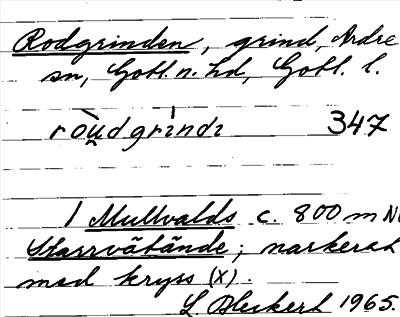 Rodgrinden, grind, Ardre
sn, Gotl. n. hd, Gotl. l.
ròu̯dgrìndı 347
I Mullvalds c. 800 m N
Starrvätände; markerat
med kryss (x).
L. Bleckert 1965.